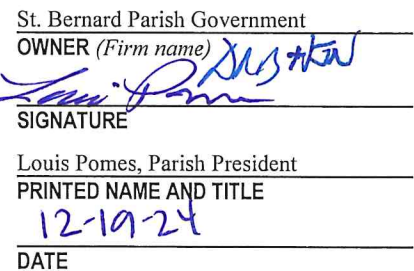 St. Bernard Parish Government
OWNER (Firm name)
SIGNATURE
Louis Pomes, Parish President
PRINTED NAME AND TITLE
12-19-24
DATE